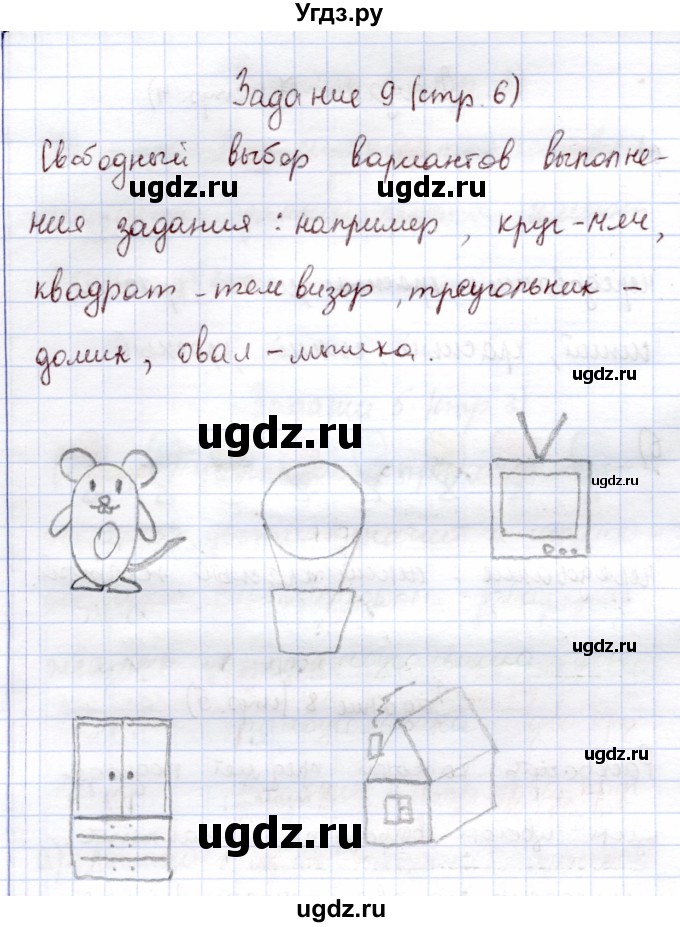 Угдз.ру
Задание 9 (стр. 6)
Свободный выбор вариантов выполне-
ugdz.ru ugdz.ru
ния задания: например, круг-мяч,
квадрат-телевизор, треугольник -
домик, овал-мышка.
ugdz.ru
ugdz.ru
ugdz.ru
ugdz.ru
ugdz.ru
ugdz.ru
ugdz.ru